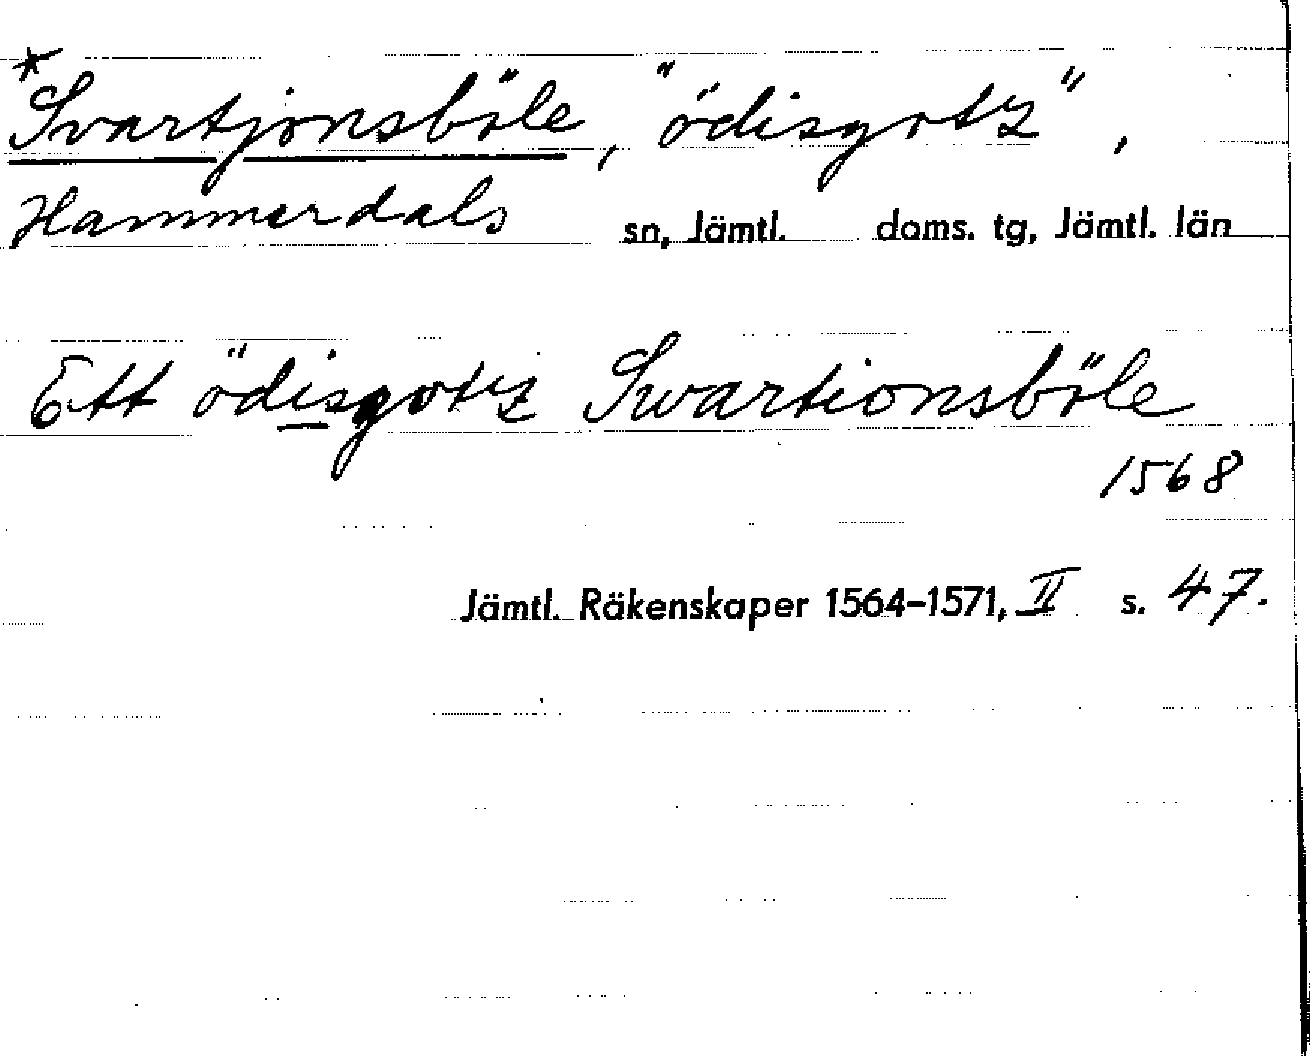 *Svartjonsböle, "ödisgotz",
Hammerdals sn, Jämtl. doms. tg, Jämtl. län
Ett ödisgotz Swartionsböle
1568
Jämtl. Räkenskaper 1564-1571, II s. 47.